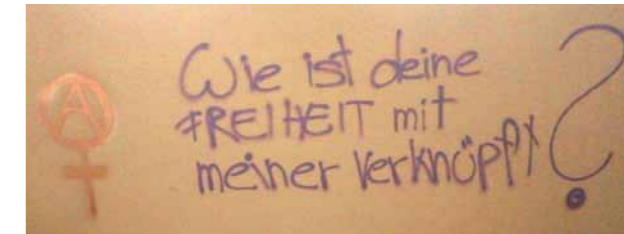 Wie ist deine
FREIHEIT mit
meiner verknüpft?
A